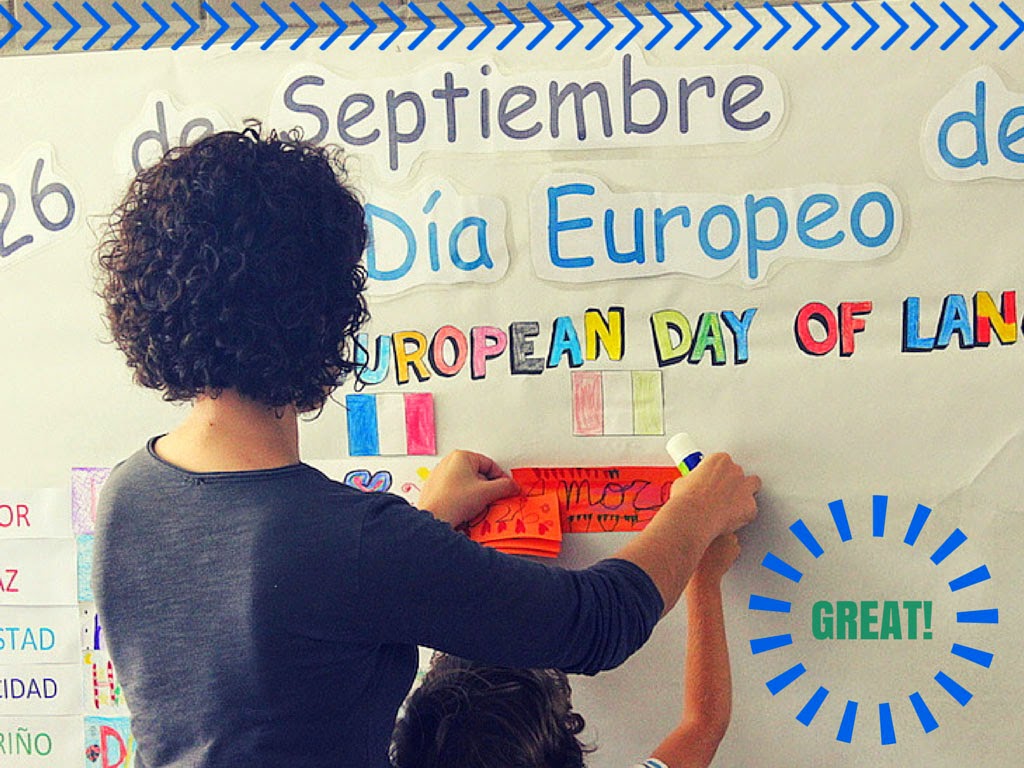 26 de Septiembre de
Día Europeo
EUROPEAN DAY OF LAN
Amore
OR
AZ
STAD
CIDAD
RIÑO
GREAT!